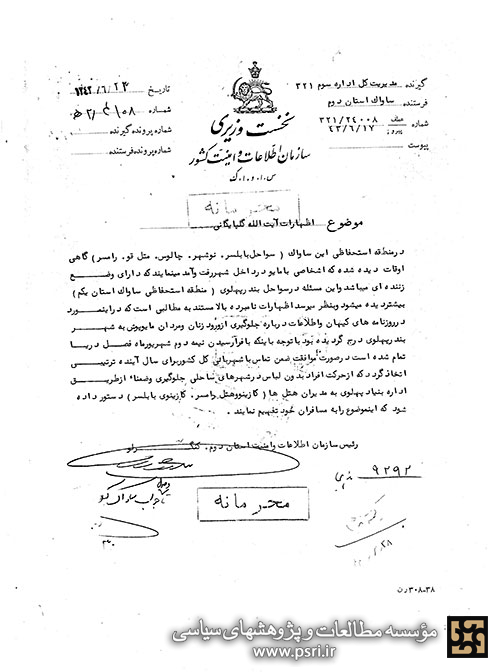 گیرنده مدیریت کل اداره سوم ۳۲۱
فرستنده ساواک استان دوم
شماره عطف ۳۲۱/۲۴۰۰۸
پیرو ۴۳/۶/۱۷
پیوست
نخست وزیری
سازمان اطلاعات و امنیت کشور
س.ا.و.ا.ک
تاریخ ۱۳۴۳/۶/۲۳
شماره
شماره پرونده گیرنده
شماره پرونده فرستنده
محرمانه
موضوع اظهارات آیت الله گلپایگانی
در منطقه استحفاظی این ساواک ( سواحل بابلسر، نوشهر، چالوس، متل قو، رامسر) گاهی
اوقات دیده شده که اشخاصی با مایو در داخل شهر رفت و آمد مینمایند که دارای وضع
زننده ای میباشد و این مسئله در سواحل بندر پهلوی ( منطقه استحفاظی ساواک استان یکم)
بیشتر دیده میشود و بنظر میرسد اظهارات نامبرده بالا مستند به مطالبی است که در اینمورد
در روزنامه های کیهان و اطلاعات درباره جلوگیری از ورود زنان و مردان مایوپوش به شهر
بندر پهلوی درج گردیده بود با توجه باینکه با فرا رسیدن نیمه دوم شهریور ماه فصل دریا
تمام شده است در صورت موافقت ضمن تماس با شهربانی کل کشور برای سال آینده ترتیبی
اتخاذ گردد که از حرکت افراد بدون لباس در شهرهای ساحلی جلوگیری و ضمنا" از طریق
اداره بنیاد پهلوی به مدیران هتل ها ( کازینو و هتل رامسر، کازینوی بابلسر) دستور داده
شود که اینموضوع را به مسافران خود تفهیم نمایند .
رئیس سازمان اطلاعات و امنیت استان دوم.
۹۲۹۲
محرمانه
۳۸-۳۰۸ ن
مؤسسه مطالعات و پژوهشهای سیاسی
www.psri.ir